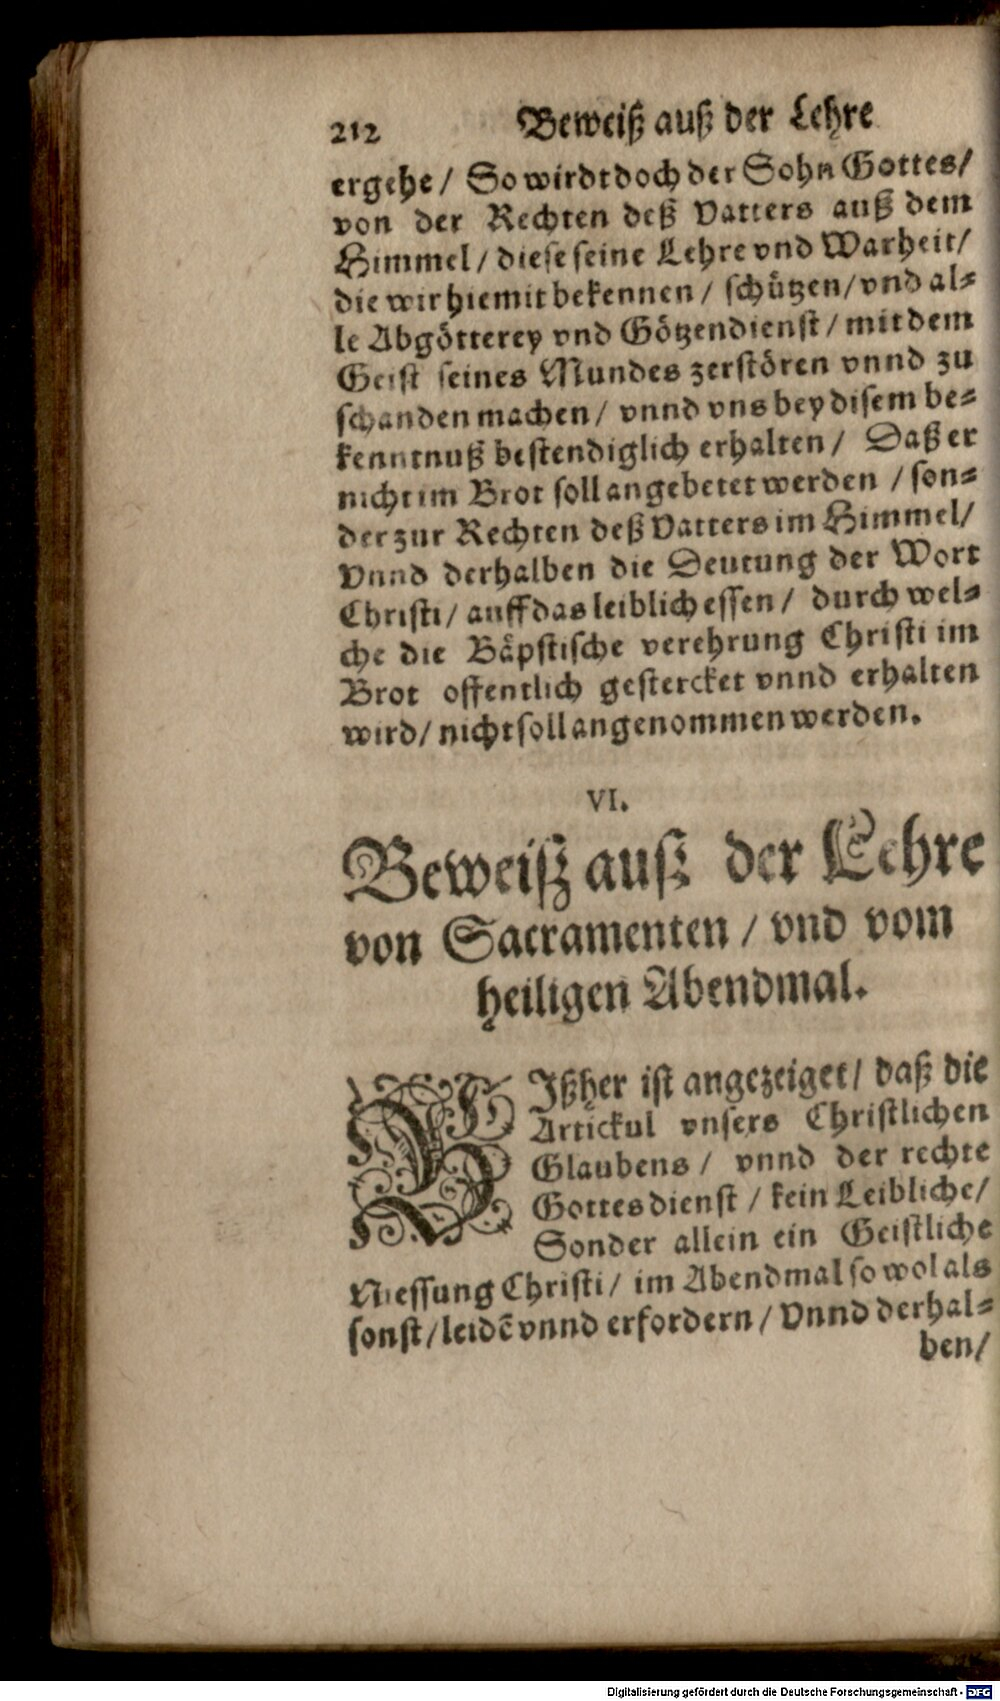 212 Beweiß auß der Lehre
ergehe / So wirdt doch der Sohn Gottes /
von der Rechten deß Vatters auß dem
Himmel / diese seine Lehre vnd Warheit /
die wir hiemit bekennen / schützen / vnd al⸗
le Abgötterey vnd Götzendienst / mit dem
Geist seines Mundes zerstören vnnd zu
schanden machen / vnnd vns bey disem be⸗
kenntnuß bestendiglich erhalten / Daß er
nicht im Brot soll angebetet werden / son⸗
der zur Rechten deß Vatters im Himmel /
Vnnd derhalben die Deutung der Wort
Christi / auff das leiblich essen / durch wel⸗
che die Bäpstische verehrung Christi im
Brot offentlich gestercket vnnd erhalten
wird / nicht soll angenommen werden.
VI.
Beweiß auß der Lehre
von Sacramenten / vnd vom
heiligen Abendmal.
BIßher ist angezeiget / daß die
Artickul vnsers Christlichen
Glaubens / vnnd der rechte
Gottesdienst / kein Leibliche /
Sonder allein ein Geistliche
Niessung Christi / im Abendmal so wol als
sonst / leidẽ vnnd erfordern / Vnnd derhal⸗
ben /
Digitalisierung gefördert durch die Deutsche Forschungsgemeinschaft - DFG